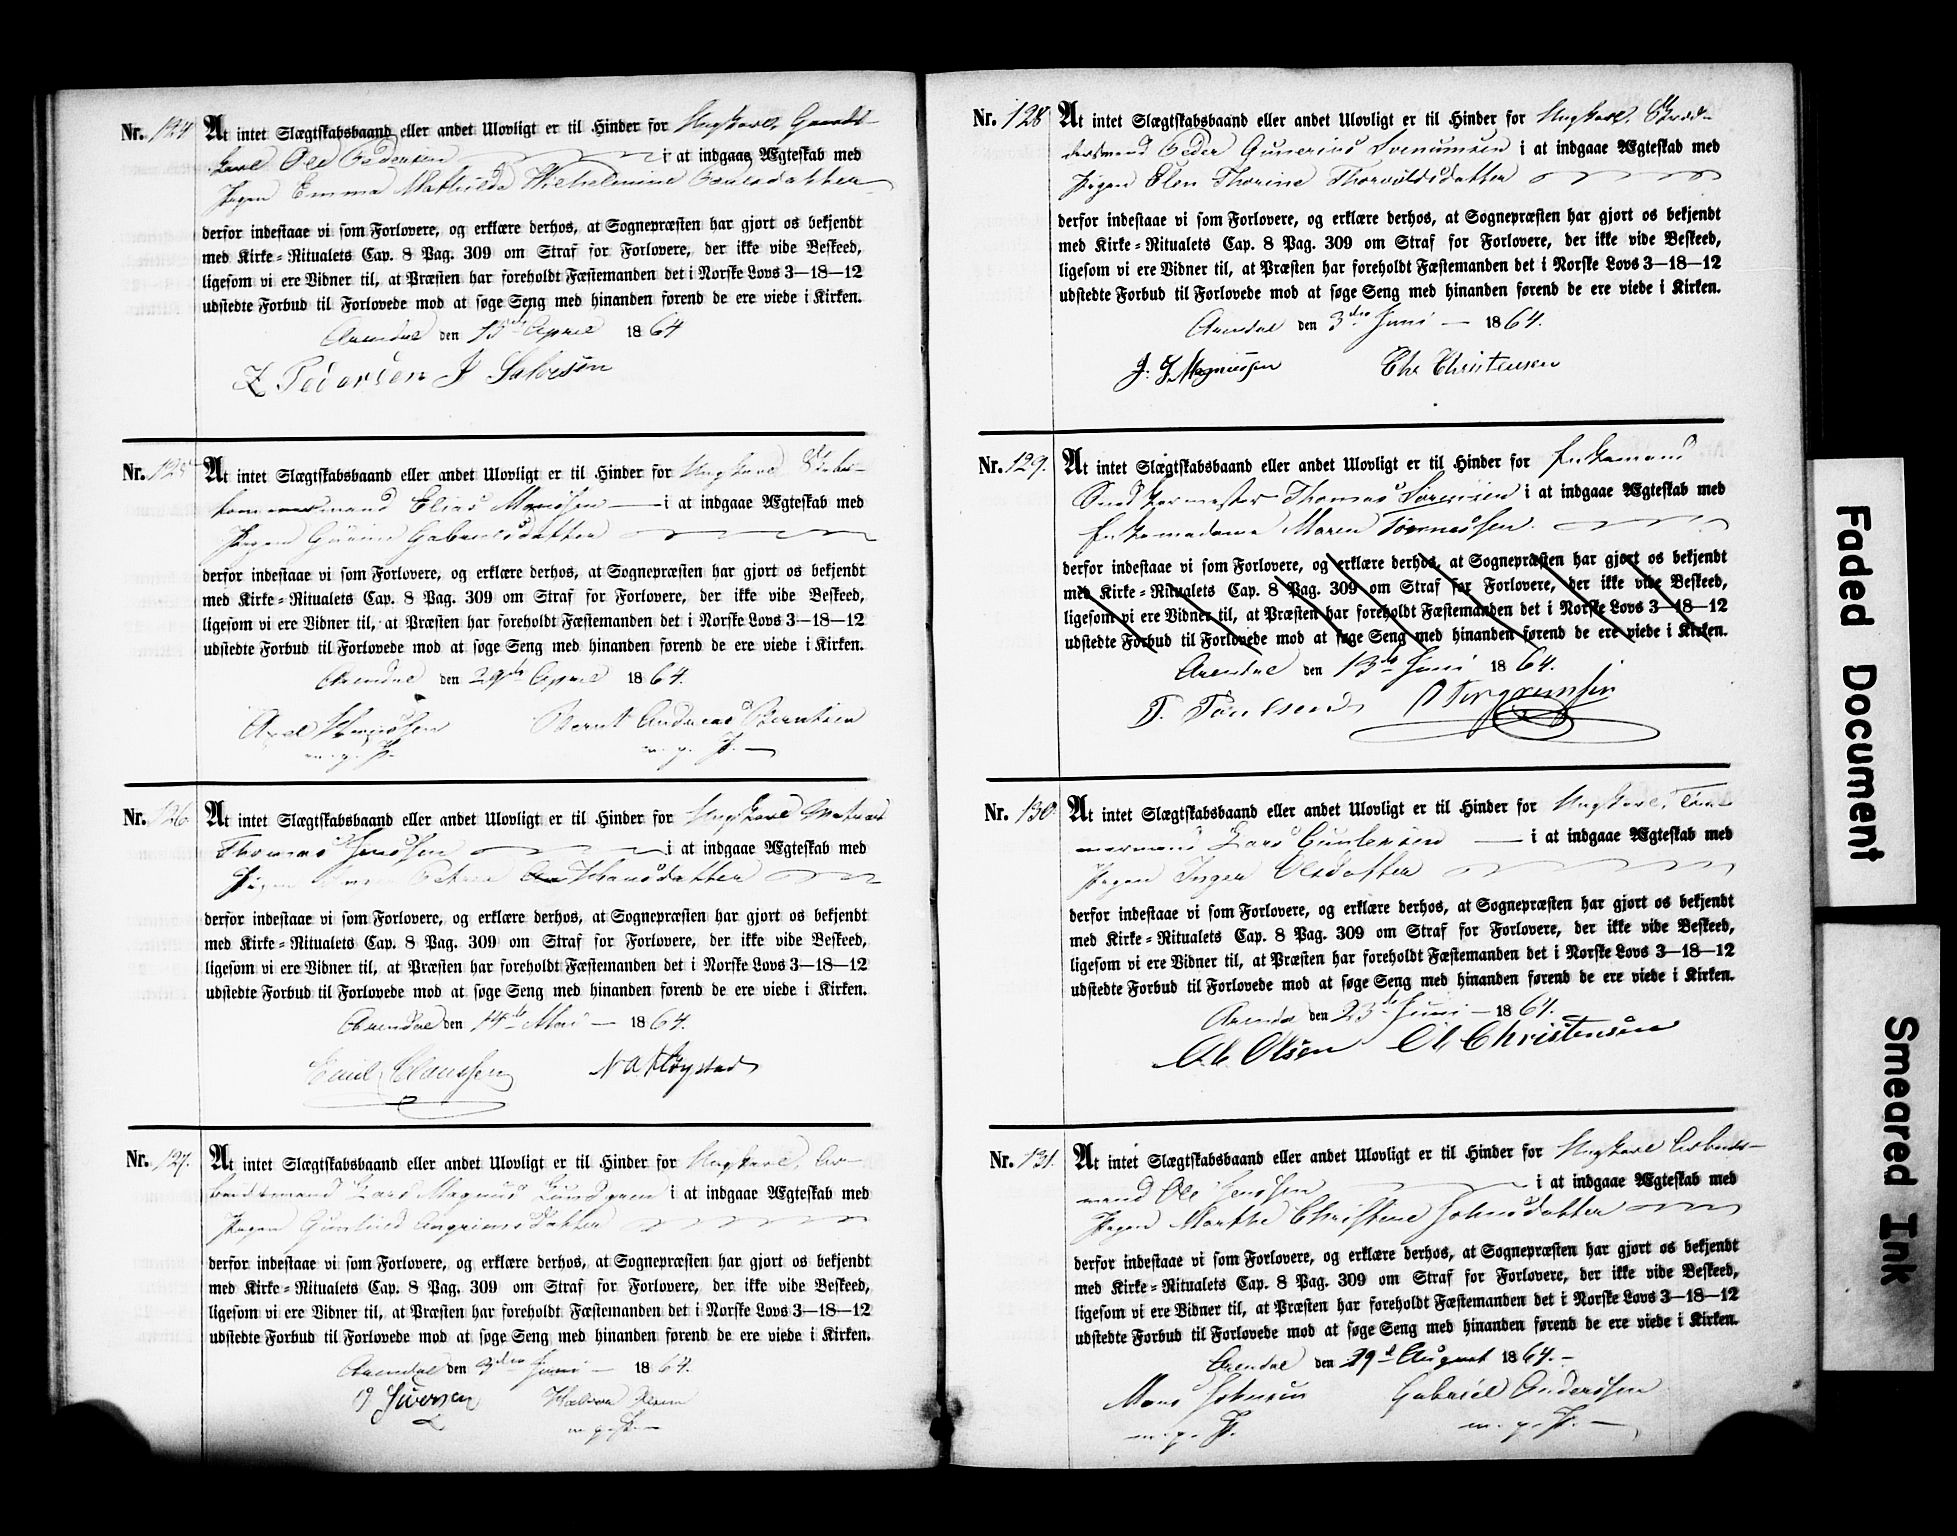 Nr. 124 At intet Slægtskabsbaand eller andet Ulovligt er til Hinder for Ungkarl, Gaards-
karl Ole Pedersen i at indgaae Ægteskab med
Pigen Emma Mathilde Wilhelmine Paulsdatter
derfor indestaae vi som Forlovere, og erklære derhos, at Sognepræsten har gjort os bekjendt
med Kirke-Ritualets Cap. 8 Pag. 309 om Straf for Forlovere, der ikke vide Beskeed,
ligesom vi ere Vidner til, at Præsten har foreholdt Fæstemanden det i Norske Lovs 3—18—12
udstedte Forbud til Forlovede mod at søge Seng med hinanden førend de ere viede i Kirken.
Arendal den 15de April 1864
Z Pedersen J Salvesen
Nr. 125 At intet Slægtskabsbaand eller andet Ulovligt er til Hinder for Ungkarl
Elias i at indgaae Ægteskab med
Pigen Gabrielsdatter
derfor indestaae vi som Forlovere, og erklære derhos, at Sognepræsten har gjort os bekjendt
med Kirke-Ritualets Cap. 8 Pag. 309 om Straf for Forlovere, der ikke vide Beskeed,
ligesom vi ere Vidner til, at Præsten har foreholdt Fæstemanden det i Norske Lovs 3—18—12
udstedte Forbud til Forlovede mod at søge Seng med hinanden førend de ere viede i Kirken.
Arendal den 29de April 1864.
Axel Bernt Andreas Berntsen
m. p. P. m. p. P.
Nr. 126 At intet Slægtskabsbaand eller andet Ulovligt er til Hinder for Ungkarl Matros
Thomas Jensen i at indgaae Ægteskab med
Pigen Hansdatter
derfor indestaae vi som Forlovere, og erklære derhos, at Sognepræsten har gjort os bekjendt
med Kirke-Ritualets Cap. 8 Pag. 309 om Straf for Forlovere, der ikke vide Beskeed,
ligesom vi ere Vidner til, at Præsten har foreholdt Fæstemanden det i Norske Lovs 3—18—12
udstedte Forbud til Forlovede mod at søge Seng med hinanden førend de ere viede i Kirken.
Arendal den 14de Mai 1864.
Claussen
Nr. 127. At intet Slægtskabsbaand eller andet Ulovligt er til Hinder for Ungkarl, Ar-
beidsmand Lars Magnus Lundgren i at indgaae Ægteskab med
Pigen Gunhild
derfor indestaae vi som Forlovere, og erklære derhos, at Sognepræsten har gjort os bekjendt
med Kirke-Ritualets Cap. 8 Pag. 309 om Straf for Forlovere, der ikke vide Beskeed,
ligesom vi ere Vidner til, at Præsten har foreholdt Fæstemanden det i Norske Lovs 3—18—12
udstedte Forbud til Forlovede mod at søge Seng med hinanden førend de ere viede i Kirken.
Arendal den 3die Juni 1864.
Iversen Halvor Olsen
m. p. P.
Nr. 128 At intet Slægtskabsbaand eller andet Ulovligt er til Hinder for Ungkarl,
Peder Gunerius i at indgaae Ægteskab med
Pigen Elen Thorine Thorvildsdatter
derfor indestaae vi som Forlovere, og erklære derhos, at Sognepræsten har gjort os bekjendt
med Kirke-Ritualets Cap. 8 Pag. 309 om Straf for Forlovere, der ikke vide Beskeed,
ligesom vi ere Vidner til, at Præsten har foreholdt Fæstemanden det i Norske Lovs 3—18—12
udstedte Forbud til Forlovede mod at søge Seng med hinanden førend de ere viede i Kirken.
Arendal den 3die Juni 1864.
J. J. Magnussen Chr Christensen
Nr. 129. At intet Slægtskabsbaand eller andet Ulovligt er til Hinder for Enkemand
Snedkermester Thomas Sørensen i at indgaae Ægteskab med
Enkemadame Maren
derfor indestaae vi som Forlovere, og erklære derhos, at Sognepræsten har gjort os bekjendt
med Kirke-Ritualets Cap. 8 Pag. 309 om Straf for Forlovere, der ikke vide Beskeed,
ligesom vi ere Vidner til, at Præsten har foreholdt Fæstemanden det i Norske Lovs 3—18—12
udstedte Forbud til Forlovede mod at søge Seng med hinanden førend de ere viede i Kirken.
Arendal den 13de Juni 1864.
T.
Nr. 130 At intet Slægtskabsbaand eller andet Ulovligt er til Hinder for Ungkarl, Töm-
mermand Lars Guntersen i at indgaae Ægteskab med
Pigen Inger Olsdatter
derfor indestaae vi som Forlovere, og erklære derhos, at Sognepræsten har gjort os bekjendt
med Kirke-Ritualets Cap. 8 Pag. 309 om Straf for Forlovere, der ikke vide Beskeed,
ligesom vi ere Vidner til, at Præsten har foreholdt Fæstemanden det i Norske Lovs 3—18—12
udstedte Forbud til Forlovede mod at søge Seng med hinanden førend de ere viede i Kirken.
Arendal den 23de Juni 1864.
Olsen Christensen
Nr. 131. At intet Slægtskabsbaand eller andet Ulovligt er til Hinder for Ungkarl Arbeids-
mand Ole Jensen i at indgaae Ægteskab med
Pigen Marthe Christene Johnsdatter
derfor indestaae vi som Forlovere, og erklære derhos, at Sognepræsten har gjort os bekjendt
med Kirke-Ritualets Cap. 8 Pag. 309 om Straf for Forlovere, der ikke vide Beskeed,
ligesom vi ere Vidner til, at Præsten har foreholdt Fæstemanden det i Norske Lovs 3—18—12
udstedte Forbud til Forlovede mod at søge Seng med hinanden førend de ere viede i Kirken.
Arendal den 29d August 1864.
Mons Johnsen Gabriel Anderssen
m. p. P. m. p. P.
Faded Document
Smeared Ink